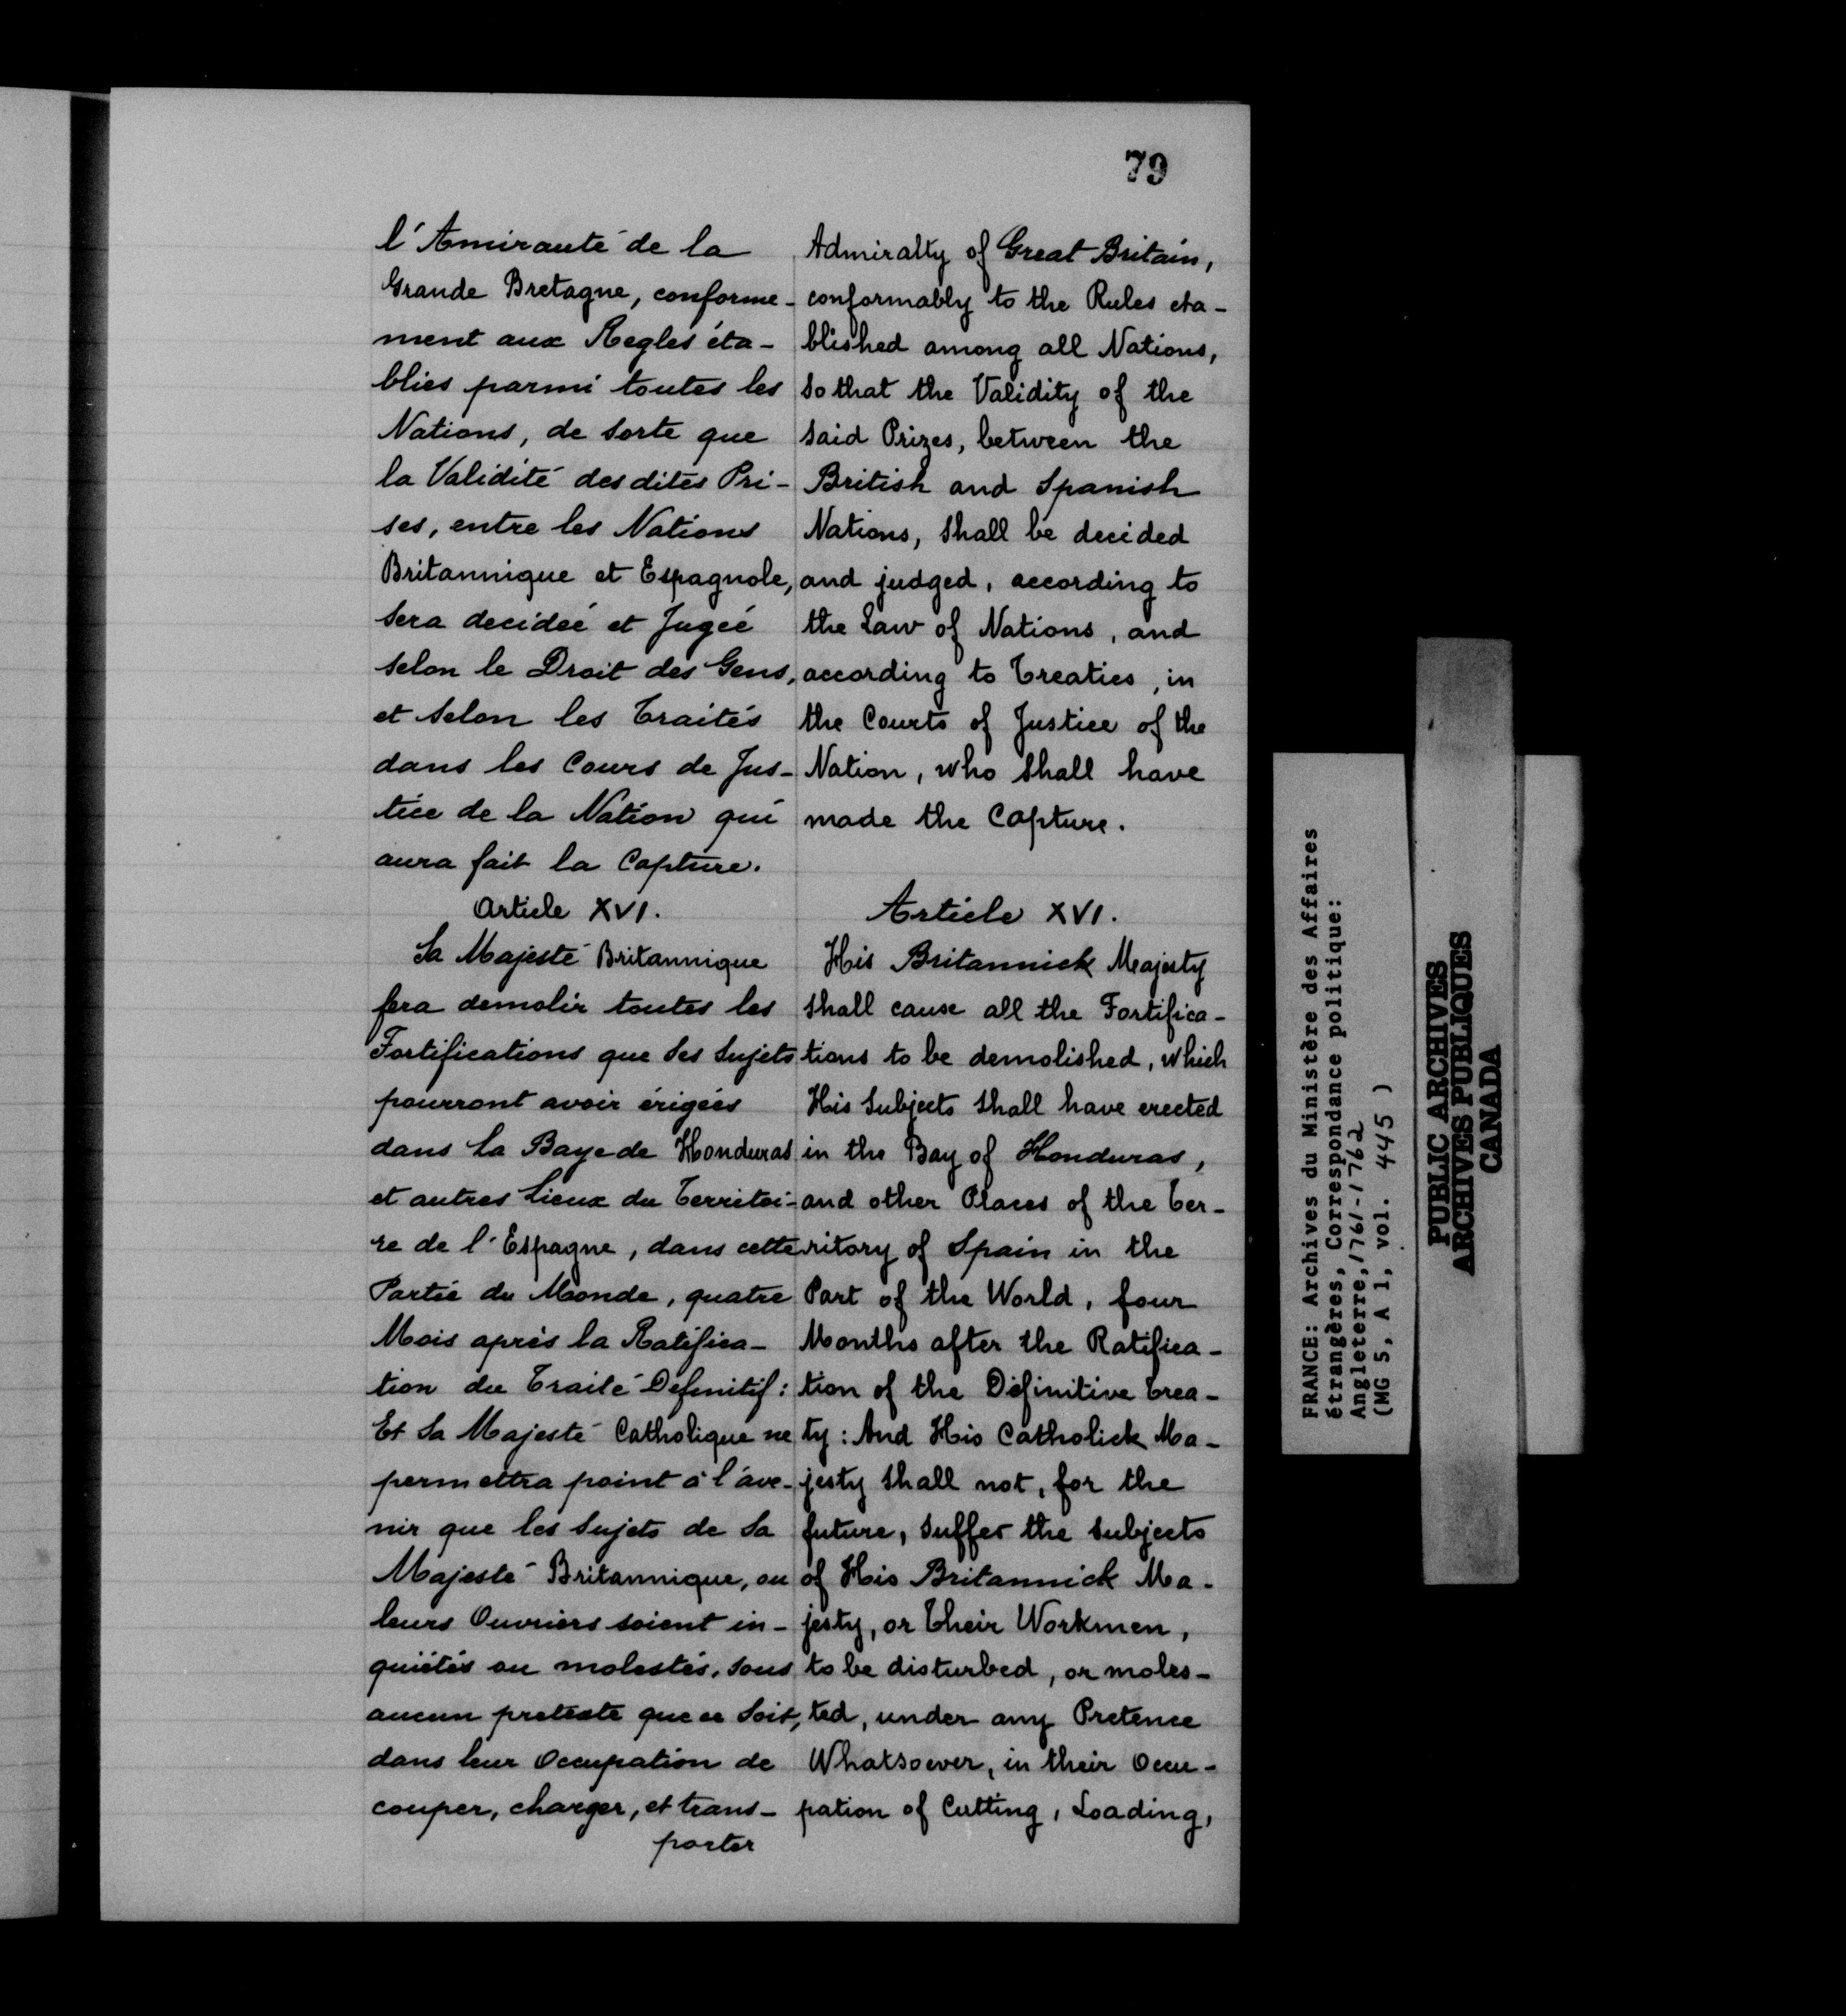 79
l'Amirauté de la
Grande Bretagne, conforme-
ment aux Regles éta-
blies parmi toutes les
Nations, de sorte que
la Validité desdites Pri-
ses, entre les Nations
Britannique et Espagnole,
sera decidée et Jugée
selon le Droit des Gens,
et selon les Traités
dans les Cours de Jus-
tice de la Nation qui
aura fait la Capture.
Article XVI.
Sa Majesté Britannique
fera demolir toutes les
Fortifications que ses Sujets
pourront avoir érigées
dans la Baye de Honduras
et autres Lieux du Territoi-
re de l'Espagne, dans cette
Partie du Monde, quatre
Mois après la Ratifica-
tion du Traité Definitif:
Et Sa Majesté Catholique ne
permettra point à l'ave-
nir que les Sujets de Sa
Majesté Britannique, ou
leurs Ouvriers soient in-
quiétés ou molestés, sous
aucun pretexte que ce soit,
dans leur Occupation de
couper, charger, et trans-
porter
Admiralty of Great Britain,
conformably to the Rules eta-
blished among all Nations,
so that the Validity of the
said Prizes, between the
British and Spanish
Nations, shall be decided
and judged, according to
the Law of Nations, and
according to Treaties, in
the Courts of Justice of the
Nation, who shall have
made the Capture.
Article XVI.
His Britannick Majesty
shall cause all the Fortifica-
tions to be demolished, which
His Subjects shall have erected
in the Bay of Honduras,
and other Places of the Ter-
ritory of Spain in the
Part of the World, four
Months after the Ratifica-
tion of the Definitive Trea-
ty: And His Catholick Ma-
jesty shall not, for the
future, suffer the subjects
of His Britannick Ma-
jesty, or their Workmen,
to be disturbed, or moles-
ted, under any Pretence
Whatsoever, in their Occu-
pation of Cutting, Loading,
FRANCE: Archives du Ministère des Affaires
étrangères, Correspondance politique:
Angleterre, 1761-1762
(MG 5, A 1, vol. 445 )
PUBLIC ARCHIVES
ARCHIVES PUBLIQUES
CANADA